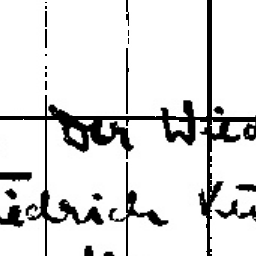 Der Wied
iedrich Kü